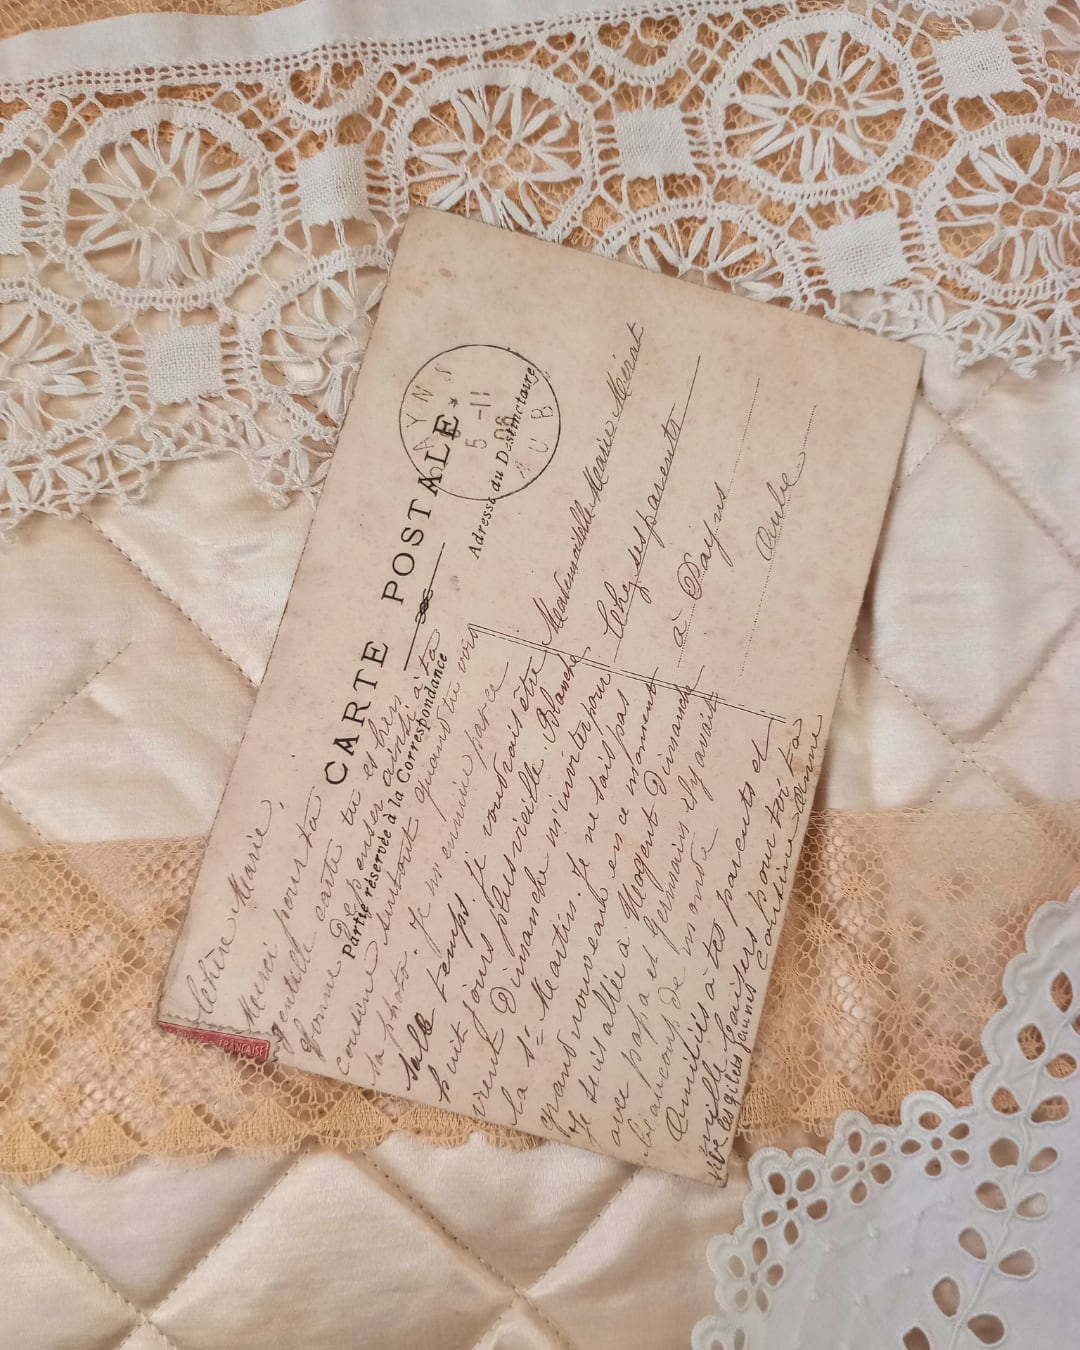 CARTE POSTALE
Partie réservée à la Correspondance
Adresse du Destinataire
PAYNS
5 -11
06
AUB
FRANÇAISE
Chère Marie,
Merci pour ta
gentille carte tu es bien
bonne de penser ainsi à ta
cousine surtout quand tu vois
sa photo. Je m'ennuie par ce
sale temps je voudrais être
huit jours plus vieille. Blanche
vient Dimanche m'inviter pour
la St Martin. Je ne sais pas
grand nouveau en ce moment
Je suis allée à Nogent Dimanche
avec papa et Germain il y avait
beaucoup de monde
Amitiés à tes parents et
mille baisers pour toi ta
cousine
Vive les gilets jaunes
Mademoiselle Marie Mérat
Chez ses parents
à Payns
Aube